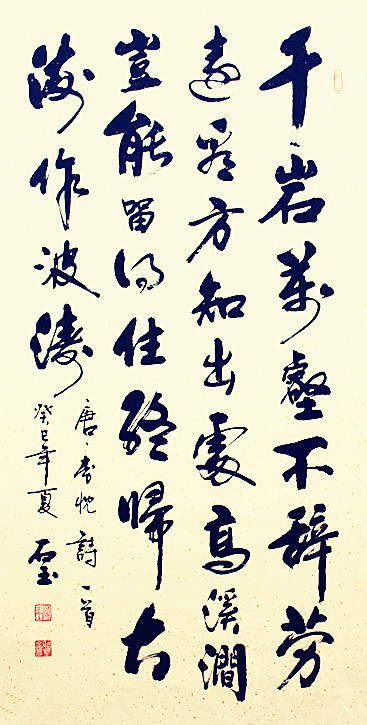 千岩萬壑不辞劳
遠看方知出處高溪澗
豈能留得住終歸大
海作波濤
唐·李忱詩一首
癸巳年夏 石玉